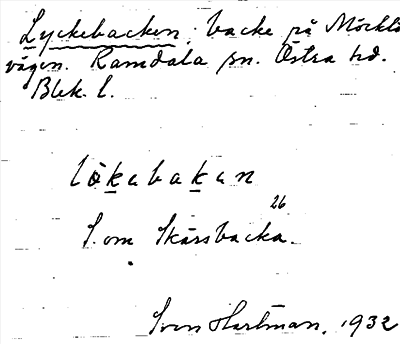 Lyckebacken, backe på Möcklö
vägen. Ramdala sn. Östra hd.
Blek. l.
lökabakan
26
S. om Skärsbacka.
Sven Hartman, 1932